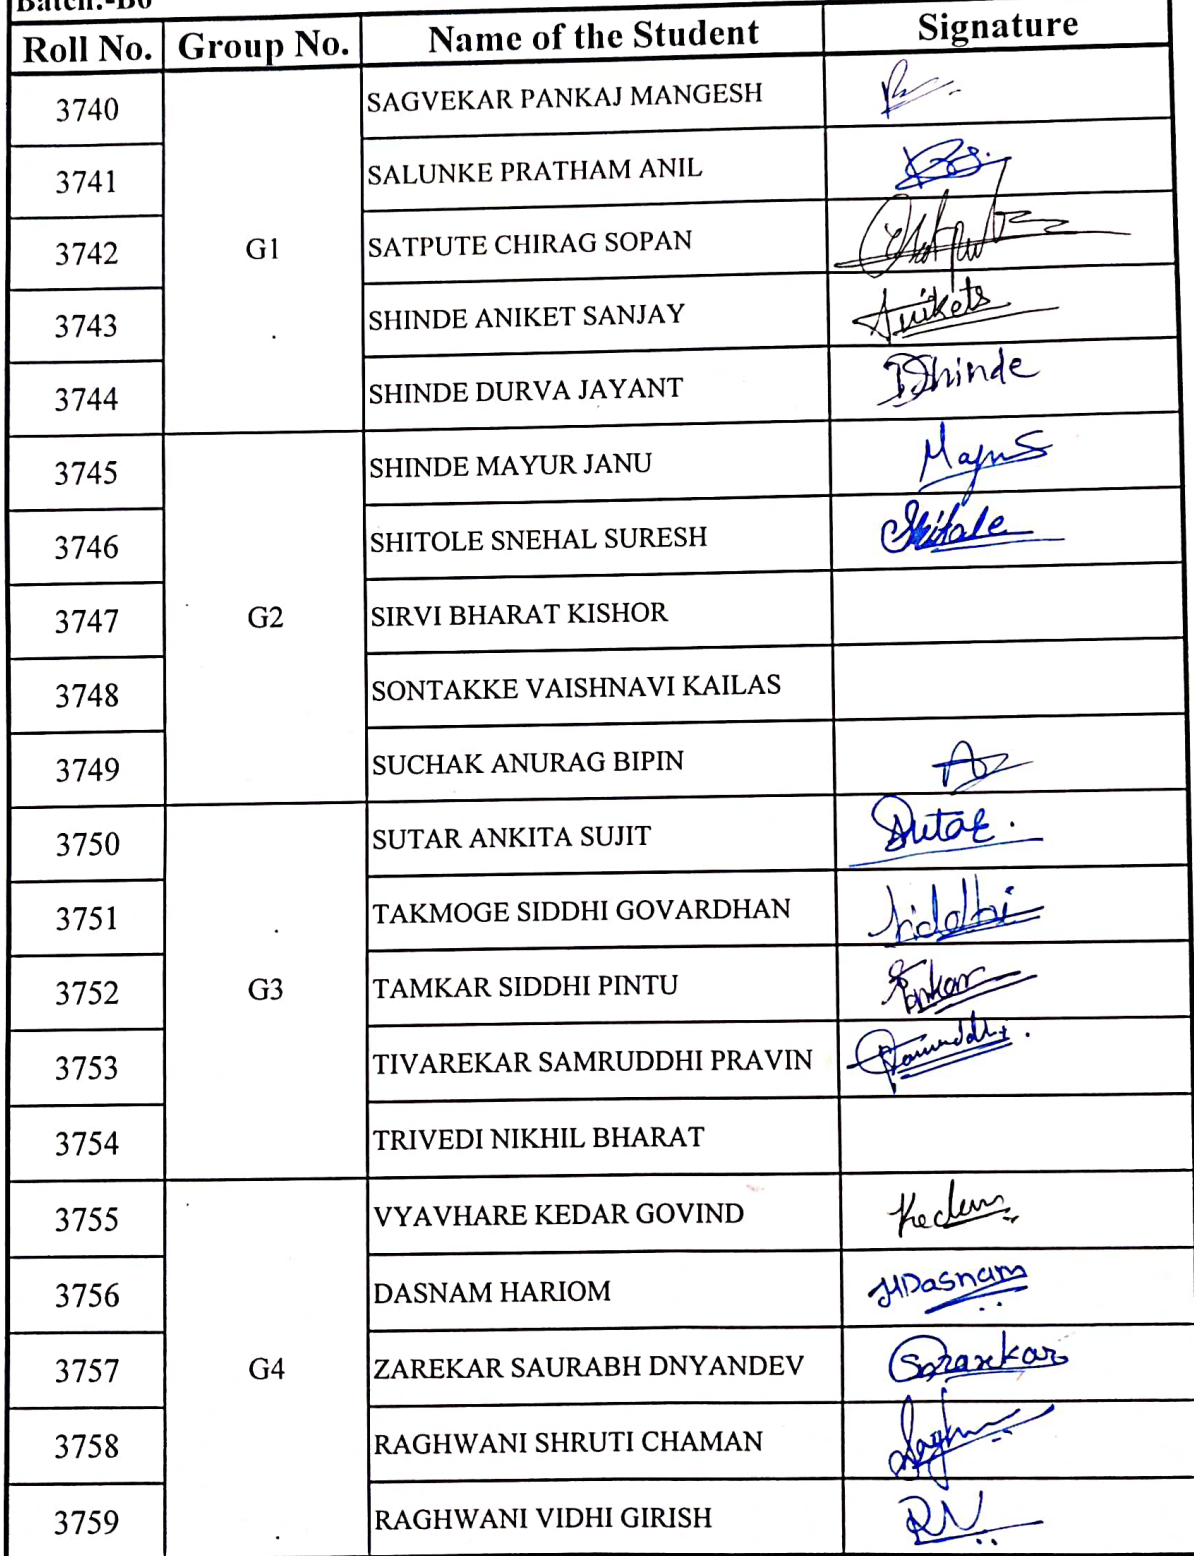 Batch:-B6
Roll No. Group No. Name of the Student Signature
3740 SAGVEKAR PANKAJ MANGESH
3741 SALUNKE PRATHAM ANIL
3742 G1 SATPUTE CHIRAG SOPAN
3743 SHINDE ANIKET SANJAY Anikets
3744 SHINDE DURVA JAYANT DShinde
3745 SHINDE MAYUR JANU
3746 SHITOLE SNEHAL SURESH Shitole
3747 G2 SIRVI BHARAT KISHOR
3748 SONTAKKE VAISHNAVI KAILAS
3749 SUCHAK ANURAG BIPIN
3750 SUTAR ANKITA SUJIT Sutar.
3751 TAKMOGE SIDDHI GOVARDHAN Siddhi
3752 G3 TAMKAR SIDDHI PINTU
3753 TIVAREKAR SAMRUDDHI PRAVIN Samruddhi.
3754 TRIVEDI NIKHIL BHARAT
3755 VYAVHARE KEDAR GOVIND Kedar
3756 DASNAM HARIOM HDasnam
3757 G4 ZAREKAR SAURABH DNYANDEV SZarekar
3758 RAGHWANI SHRUTI CHAMAN
3759 RAGHWANI VIDHI GIRISH